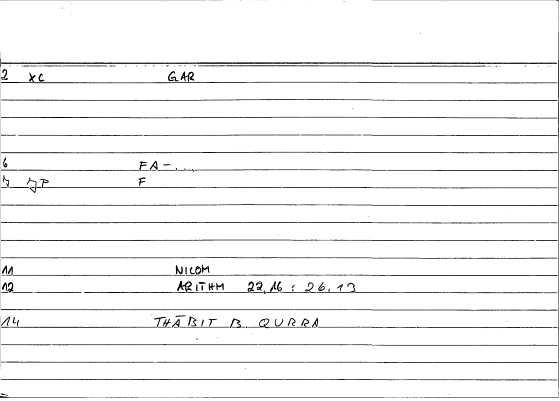 2 XC GAR
6 FA-...
7 JP F
11 NICOM
12 ARITHM 22,16 : 26.13
14 THĀBIT B. QURRA